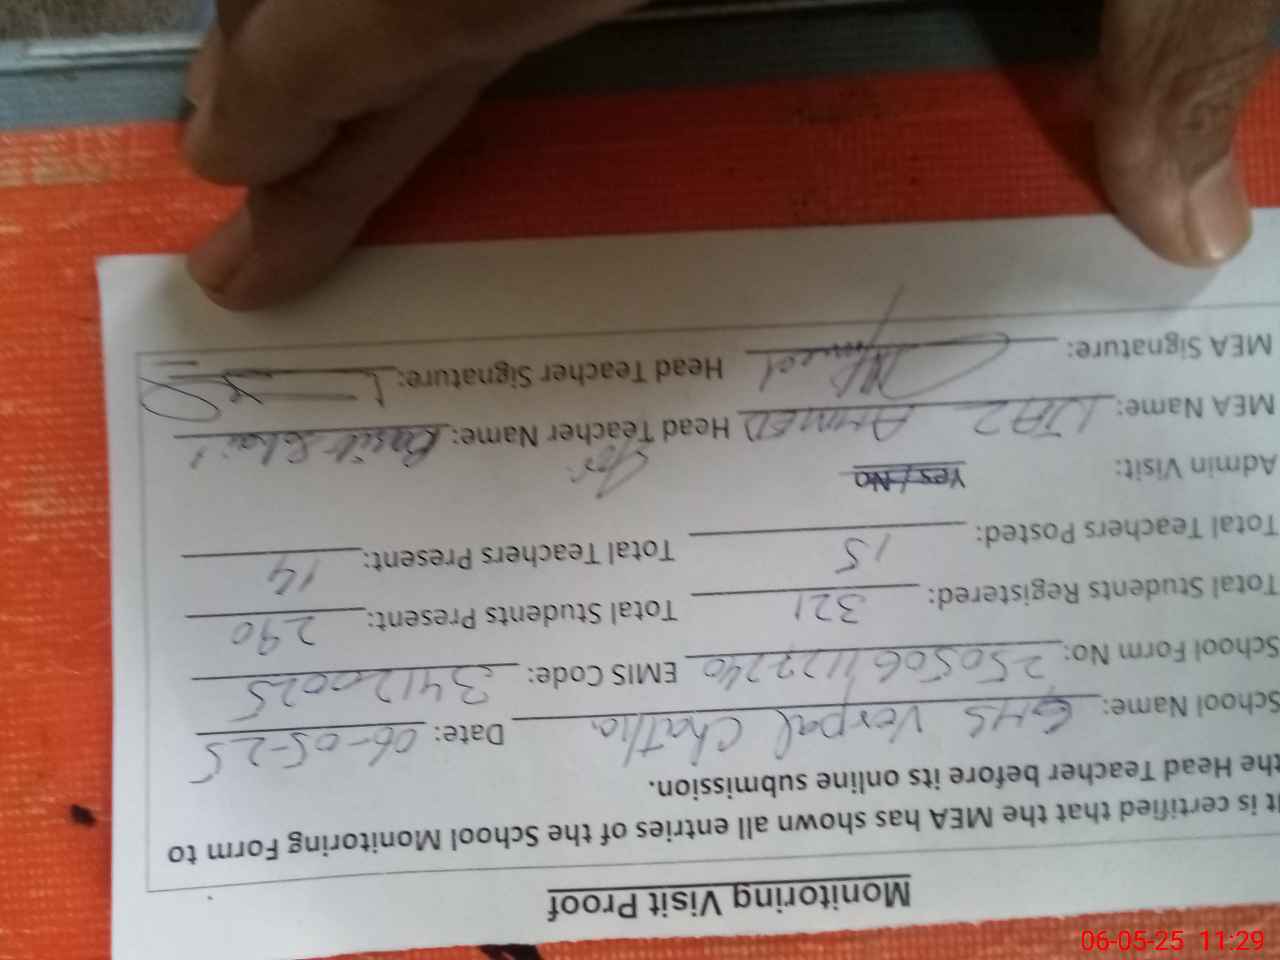 Monitoring Visit Proof
It is certified that the MEA has shown all entries of the School Monitoring Form to
the Head Teacher before its online submission.
School Name: GHS Verpal Chatha Date: 06-05-25
School Form No: EMIS Code: 34120025
Total Students Registered: 321 Total Students Present: 290
Total Teachers Posted: 15 Total Teachers Present: 14
Admin Visit: Yes / No for
MEA Name: IJAZ AHMED Head Teacher Name:
MEA Signature: Head Teacher Signature:
06-05-25 11:29